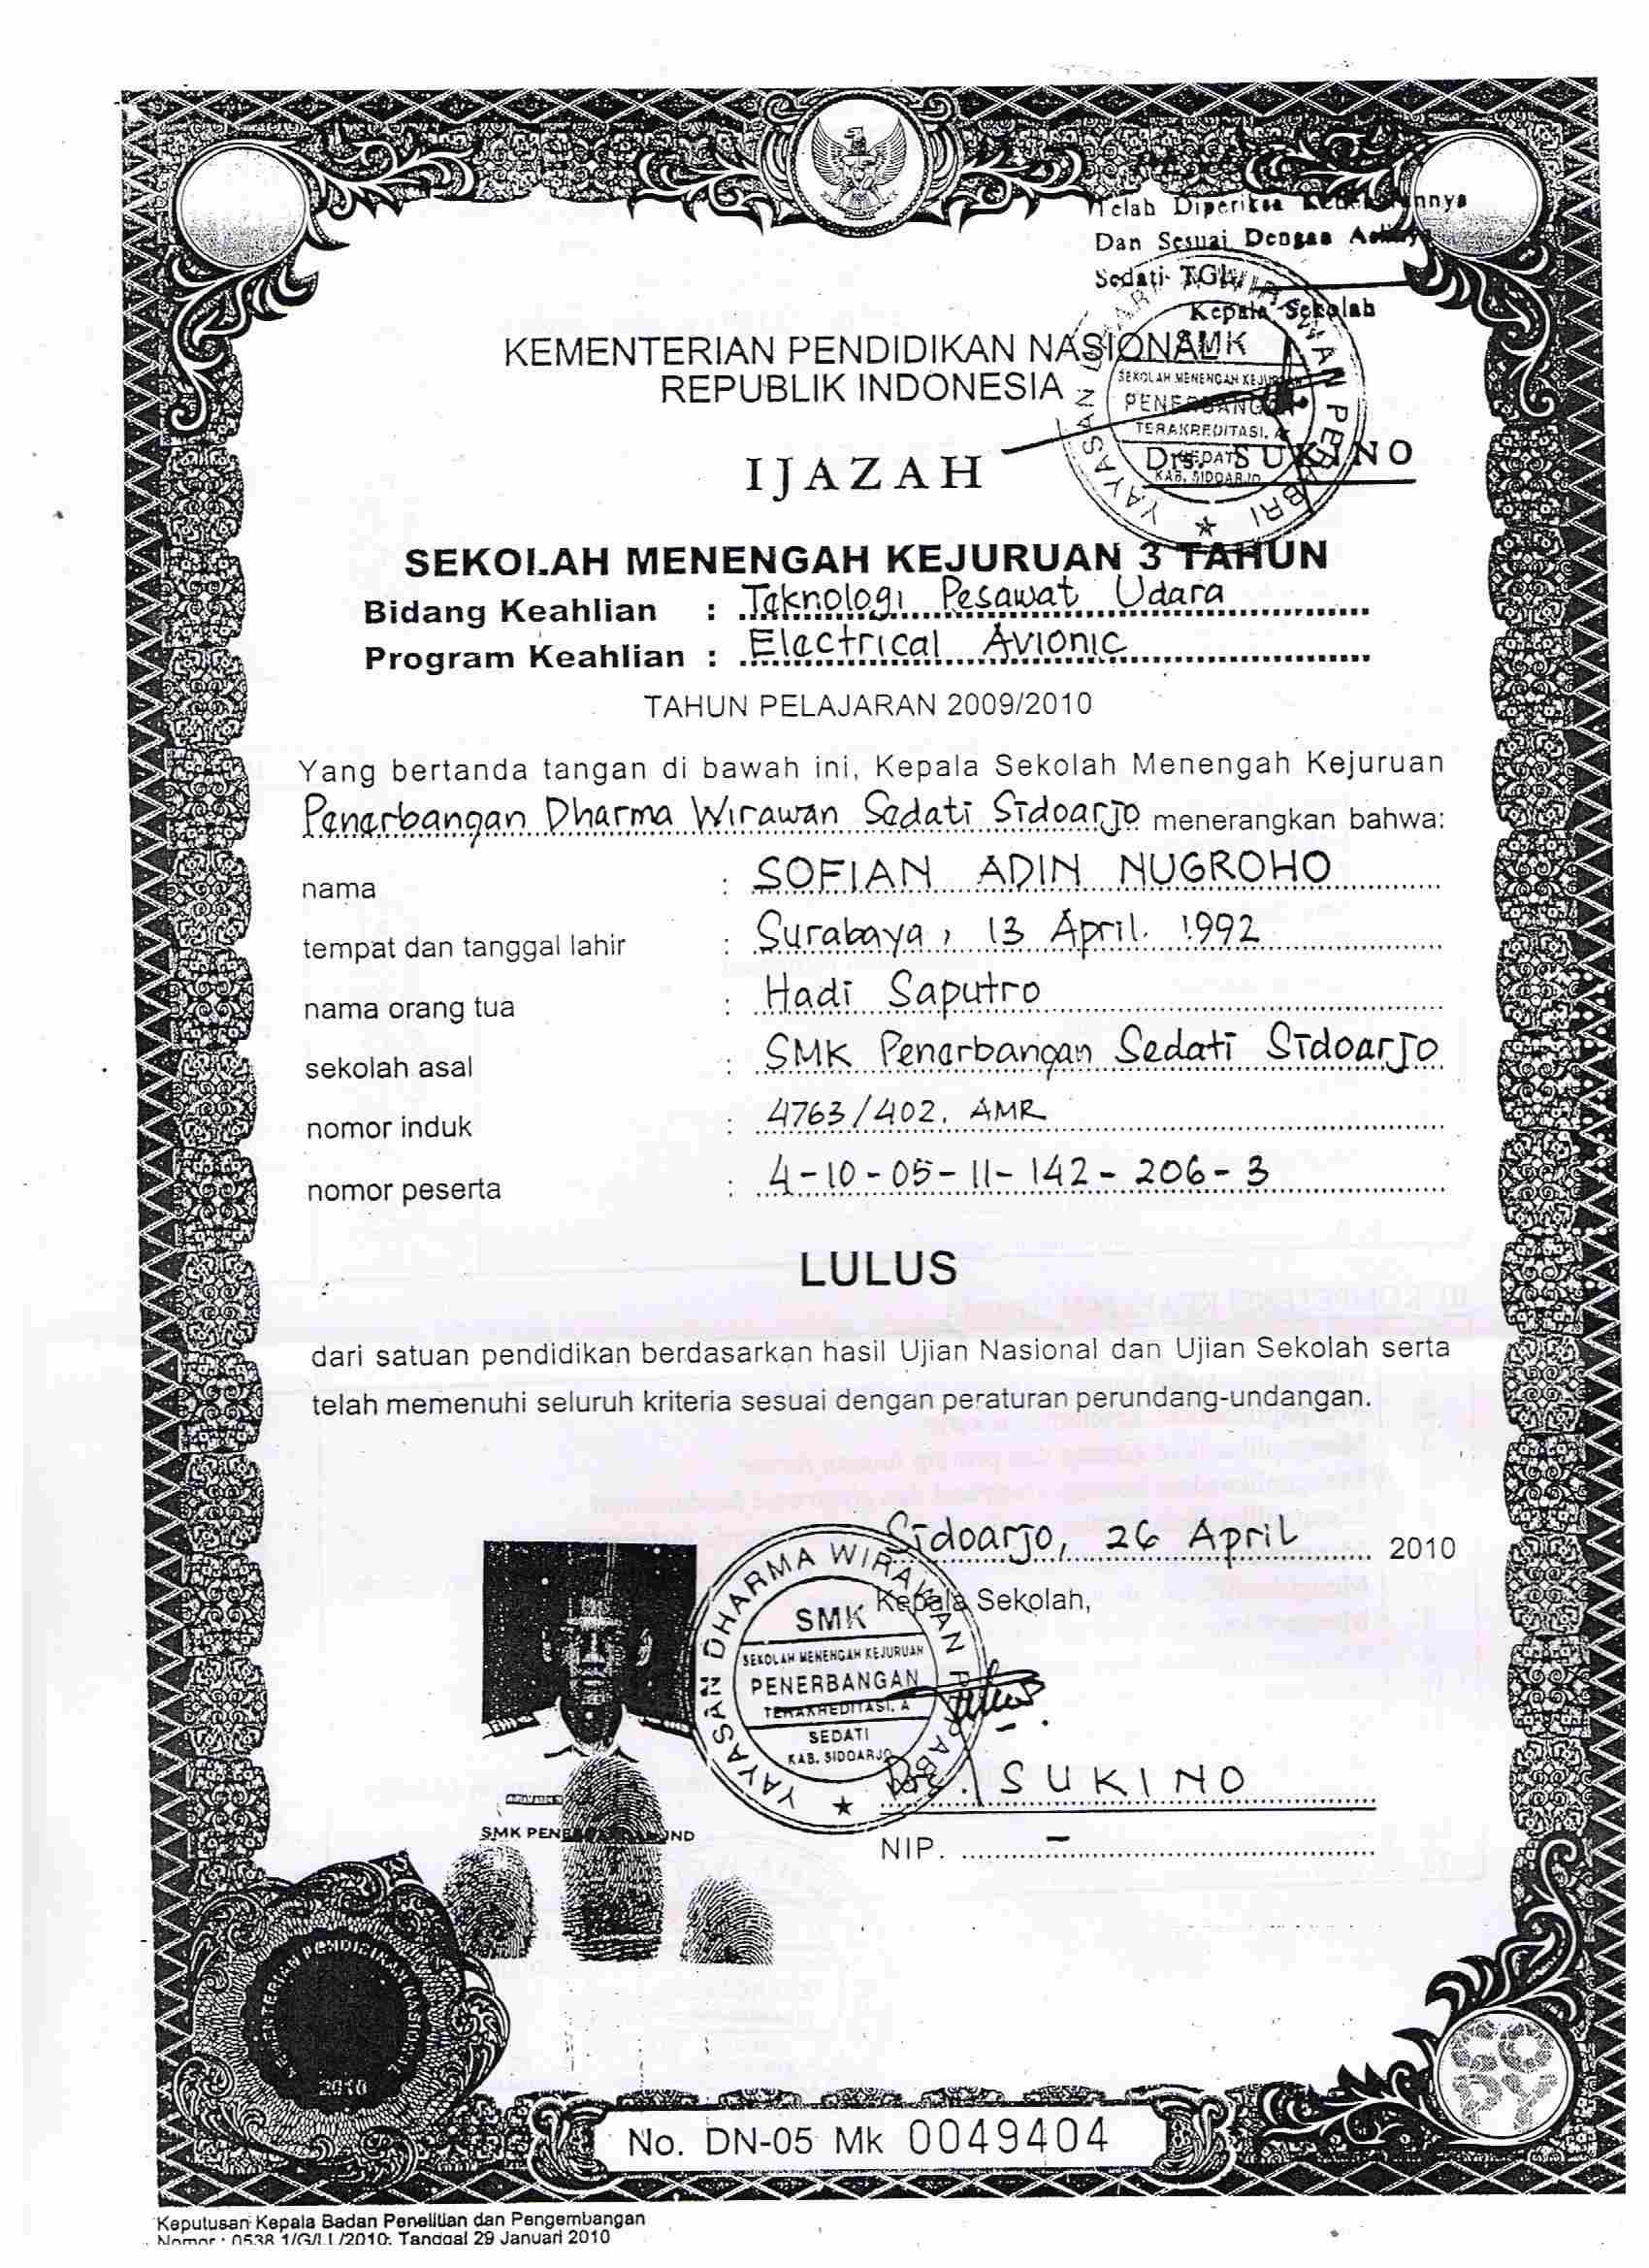 Telah Diperiksa Kebenarannya
Dan Sesuai Dengan Aslinya
Sedati TGL
Kepala Sekolah
KEMENTERIAN PENDIDIKAN NASIONAL
REPUBLIK INDONESIA
YAYASAN DHARMA WIRAWAN PEPABRI
SMK
SEKOLAH MENENGAH KEJURUAN
PENERBANGAN
TERAKREDITASI. A
SEDATI
KAB. SIDOARJO
Drs. SUKINO
IJAZAH
SEKOLAH MENENGAH KEJURUAN 3 TAHUN
Bidang Keahlian : Teknologi Pesawat Udara
Program Keahlian : Electrical Avionic
TAHUN PELAJARAN 2009/2010
Yang bertanda tangan di bawah ini, Kepala Sekolah Menengah Kejuruan
Penerbangan Dharma Wirawan Sedati Sidoarjo menerangkan bahwa:
nama : SOFIAN ADIN NUGROHO
tempat dan tanggal lahir : Surabaya, 13 April 1992
nama orang tua : Hadi Saputro
sekolah asal : SMK Penerbangan Sedati Sidoarjo
nomor induk : 4763/402. AMR
nomor peserta : 4-10-05-11-142-206-3
LULUS
dari satuan pendidikan berdasarkan hasil Ujian Nasional dan Ujian Sekolah serta
telah memenuhi seluruh kriteria sesuai dengan peraturan perundang-undangan.
Sidoarjo, 26 April 2010
Kepala Sekolah,
YAYASAN DHARMA WIRAWAN PEPABRI
SMK
SEKOLAH MENENGAH KEJURUAN
PENERBANGAN
TERAKREDITASI. A
SEDATI
KAB. SIDOARJO
Drs. SUKINO
SMK PEN
NIP. -
KEMENTERIAN PENDIDIKAN NASIONAL
2010
No. DN-05 Mk 0049404
Keputusan Kepala Badan Penelitian dan Pengembangan
Nomor : 0538.1/G/LL/2010; Tanggal 29 Januari 2010